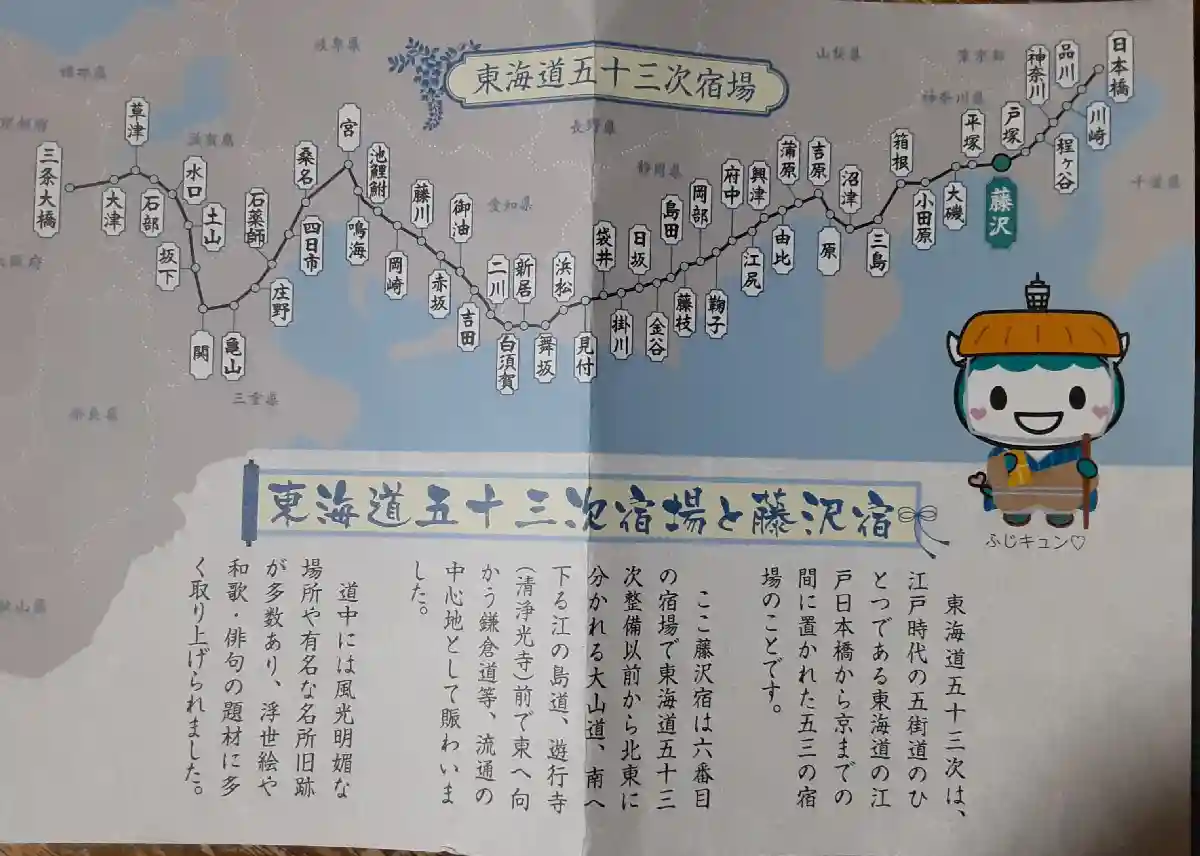 東海道五十三次宿場
日本橋
品川
川崎
神奈川
程ヶ谷
戸塚
藤沢
平塚
大磯
小田原
箱根
三島
沼津
原
吉原
蒲原
由比
興津
江尻
府中
鞠子
岡部
藤枝
島田
金谷
日坂
掛川
袋井
見付
浜松
舞坂
新居
白須賀
二川
吉田
御油
赤坂
藤川
岡崎
池鯉鮒
鳴海
宮
桑名
四日市
石薬師
庄野
亀山
関
坂下
土山
水口
石部
草津
大津
三条大橋
千葉県
東京都
神奈川県
山梨県
静岡県
長野県
愛知県
岐阜県
三重県
滋賀県
奈良県
ふじキュン♡
東海道五十三次宿場と藤沢宿
東海道五十三次は、
江戸時代の五街道のひ
とつである東海道の江
戸日本橋から京までの
間に置かれた五三の宿
場のことです。
ここ藤沢宿は六番目
の宿場で東海道五十三
次整備以前から北東に
分かれる大山道、南へ
下る江の島道、遊行寺
(清浄光寺)前で東へ向
かう鎌倉道等、流通の
中心地として賑わいま
した。
道中には風光明媚な
場所や有名な名所旧跡
が多数あり、浮世絵や
和歌・俳句の題材に多
く取り上げられました。